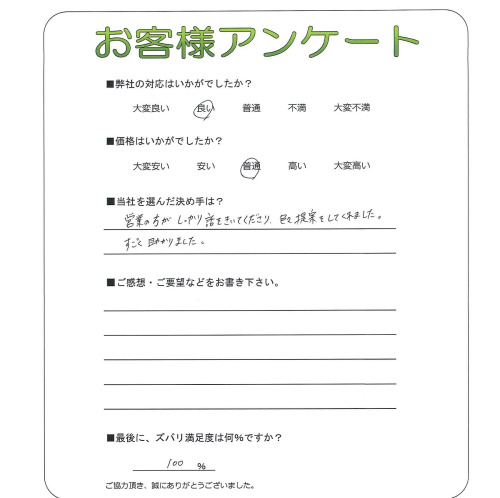 お客様アンケート
■弊社の対応はいかがでしたか？
大変良い 良い 普通 不満 大変不満
■価格はいかがでしたか？
大変安い 安い 普通 高い 大変高い
■当社を選んだ決め手は？
営業の方がしっかり話をきいてくださり、色々提案をしてくれました。
すごく助かりました。
■ご感想・ご要望などをお書き下さい。
■最後に、ズバリ満足度は何％ですか？
100 ％
ご協力頂き、誠にありがとうございました。